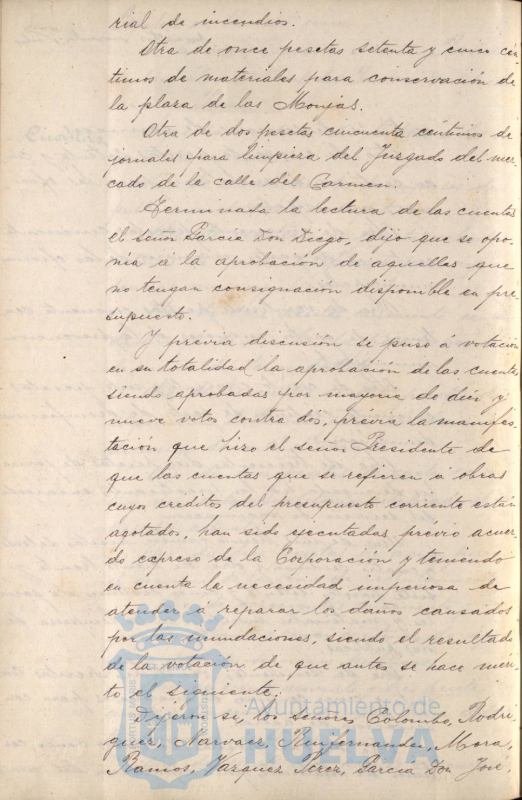 rial de incendios.
Otra de once pesetas setenta y cinco cén
timos de materiales para conservación de
la plaza de las Monjas.
Otra de dos pesetas cincuenta céntimos de
jornales para limpieza del Juzgado del mer
cado de la calle del Carmen.
Terminada la lectura de las cuentas
el señor García Don Diego, dijo que se opo
nía á la aprobación de aquellas que
no tengan consignación disponible en pre
supuesto.
Y previa discusión se puso á votación
en su totalidad la aprobación de las cuentas
siendo aprobadas por mayoria de diez y
nueve votos contra dós, prévia la manifes
tación que hizo el señor Presidente de
que las cuentas que se refieren á obras
cuyos creditos del presupuesto corriente están
agotados, han sido ejecutadas prévio acuer
do expreso de la Corporación y teniendo
en cuenta la necesidad imperiosa de
atender á reparar los daños causados
por las inundaciones, siendo el resultado
de la votación de que antes se hace méri
to el siguiente.
Dijeron si, los señores Colombo, Rodri
guez, Narvaez, Mora,
Ramos, Vazquez Perez, García Don José,
Ayuntamiento de
HUELVA